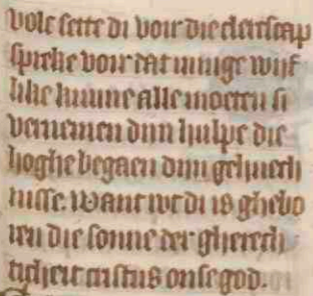 volc sette di voir die cleercscap
spreke voir dat innige wijf
like kunne alle moeten si
vernemen dijn hulpe die
hoghe begaen dijn gehuech
nisse. Want wt di is ghebo
ren die sonne der gherech
ticheit cristus onse god.